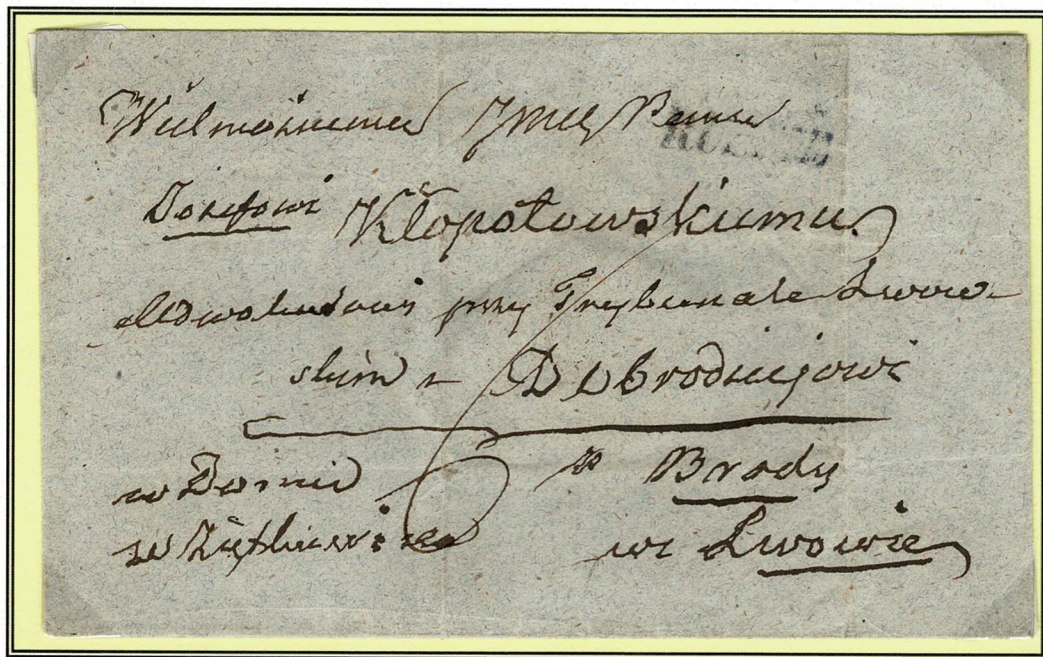 Wielmożnemu Jmć Panu
Józefowi Kłopotowskiemu
Adwokatowi przy Trybunale Lwow-
skim - Dobrodziejowi
w Domie
p Brody
we Lwowie